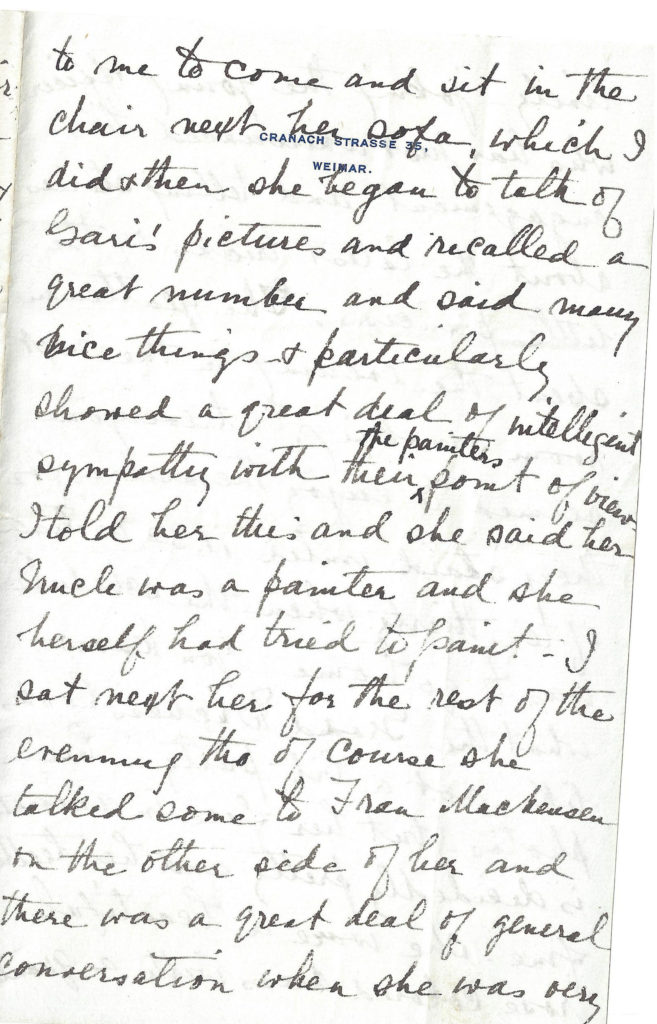 to me to come and sit in the
chair next her sofa, which I
CRANACH STRASSE 35,
WEIMAR.
did & then she began to talk of
Gari's pictures and recalled a
great number and said many
nice things & particularly
showed a great deal of intelligent
the painters
sympathy with their point of view.
I told her this and she said her
Uncle was a painter and she
herself had tried to paint. – I
sat next her for the rest of the
evening tho of course she
talked some to Frau Mackensen
on the other side of her and
there was a great deal of general
conversation when she was very